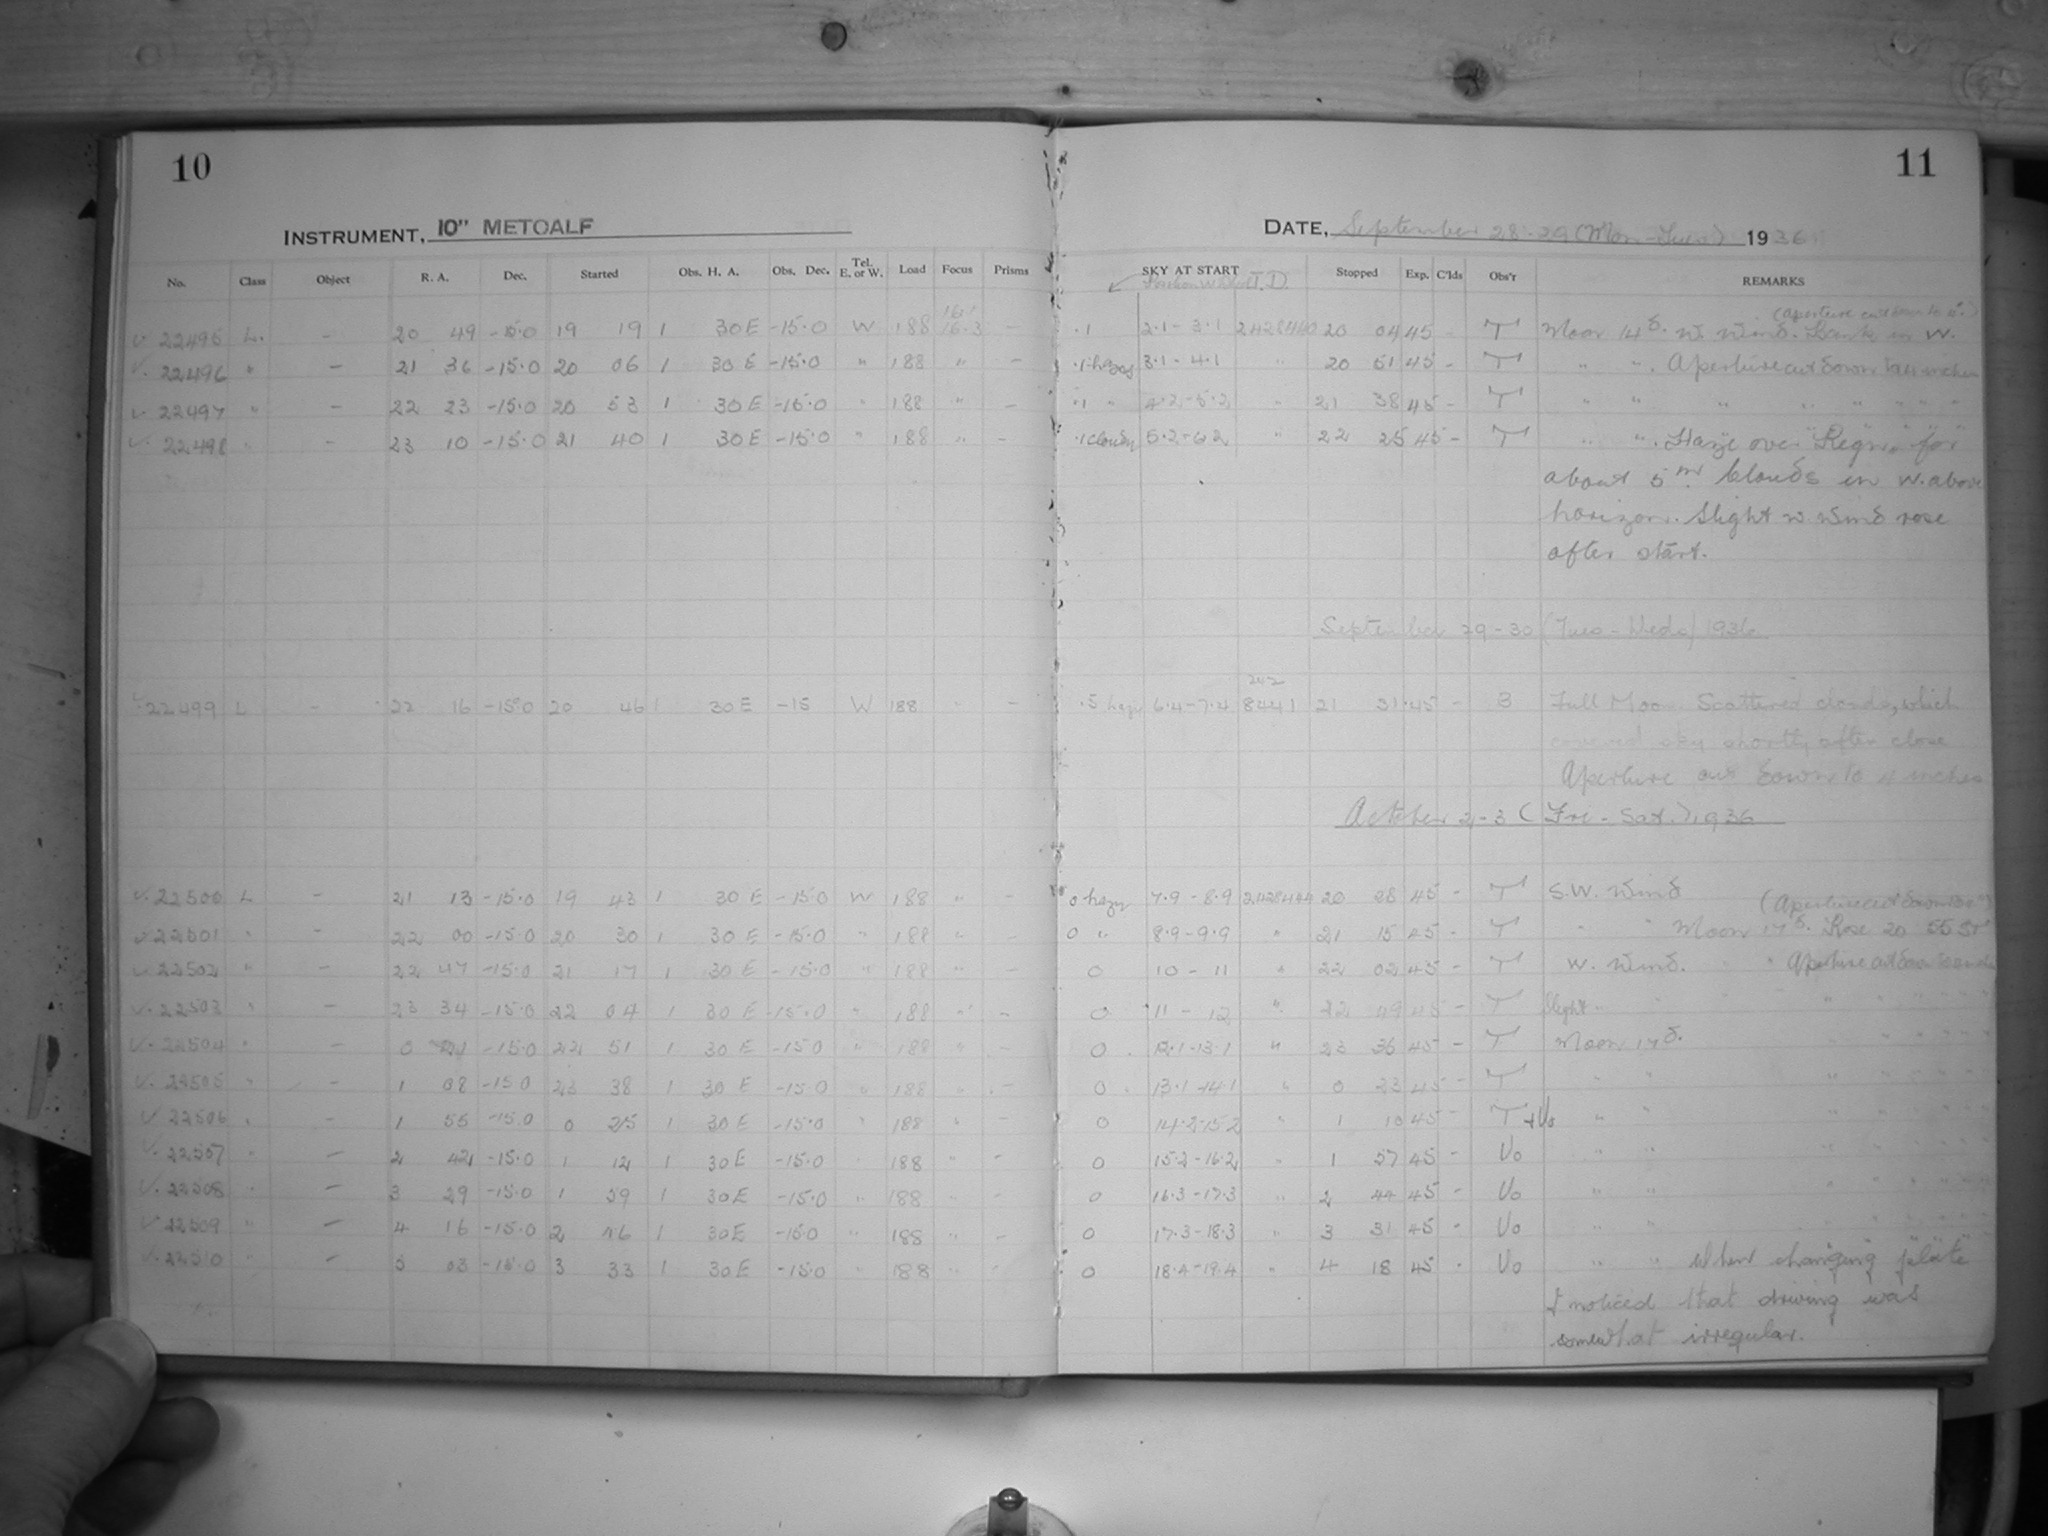 10
11
INSTRUMENT, 10" METCALF
DATE, September 28-29 (Mon-Tues) 1936
No. Class Object R. A. Dec. Started Obs. H. A. Obs. Dec. Tel. E. or W. Load Focus Prisms SKY AT START Stopped Exp. C'lds Obs'r REMARKS
J. D.
16.1 (Aperture cut down to
22495 L. - 20 49 -15.0 19 19 1 30 E -15.0 W 188 16.3 - .1 2.1 - 3.1 2428440 20 04 45 - T Moon 14d. W. Wind. in W.
22496 " - 21 36 -15.0 20 06 1 30 E -15.0 " 188 " - .1 hazy 3.1 - 4.1 " 20 51 45 - T " " . Aperture cut down to 4 inches
22497 " - 22 23 -15.0 20 53 1 30 E -15.0 " 188 " - .1 " 4.2 - 5.2 " 21 38 45 - T " " " " " " " "
22498 " - 23 10 -15.0 21 40 1 30 E -15.0 " 188 " - .1 cloudy 5.2 - 6.2 " 22 25 45 - T " " . Haze over "Region" for
about 5m. Clouds in W. above
horizon. Slight W. Wind rose
after start.
September 29-30 (Tues - Weds) 1936
242
22499 L - 22 16 -15.0 20 46 1 30 E -15 W 188 " - .5 hazy 6.4 - 7.4 8441 21 31 45 - B Full Moon. Scattered clouds, which
covered sky shortly after close
Aperture cut down to 4 inches
October 2-3 (Fri - Sat.) 1936
22500 L - 21 13 -15.0 19 43 1 30 E -15.0 W 188 " - 0 hazy 7.9 - 8.9 2428444 20 28 45 - T S.W. Wind
(Aperture cut down to
22501 " - 22 00 -15.0 20 30 1 30 E -15.0 " 188 " - 0 " 8.9 - 9.9 " 21 15 45 - T " " Moon 17d. Rose 20 55 ST
22502 " - 22 47 -15.0 21 17 1 30 E -15.0 " 188 " - 0 10 - 11 " 22 02 45 - T W. Wind. " " Aperture cut down to
22503 " - 23 34 -15.0 22 04 1 30 E -15.0 " 188 " - 0 11 - 12 " 22 49 45 - T Slight " " " " " "
22504 " - 0 21 -15.0 22 51 1 30 E -15.0 " 188 " - 0 12.1 - 13.1 " 23 36 45 - T Moon 17d. " " " "
22505 " - 1 08 -15.0 23 38 1 30 E -15.0 " 188 " - 0 13.1 - 14.1 " 0 23 45 - T " " " " " "
22506 " - 1 55 -15.0 0 25 1 30 E -15.0 " 188 " - 0 14.2 - 15.2 " 1 10 45 - T + Uo " " " " " "
22507 " - 2 42 -15.0 1 12 1 30 E -15.0 " 188 " - 0 15.2 - 16.2 " 1 57 45 - Uo " " " " " "
22508 " - 3 29 -15.0 1 59 1 30 E -15.0 " 188 " - 0 16.3 - 17.3 " 2 44 45 - Uo " " " " " "
22509 " - 4 16 -15.0 2 46 1 30 E -15.0 " 188 " - 0 17.3 - 18.3 " 3 31 45 - Uo " " " " " "
22510 " - 5 03 -15.0 3 33 1 30 E -15.0 " 188 " - 0 18.4 - 19.4 " 4 18 45 - Uo " " When changing plate
I noticed that driving was
somewhat irregular.